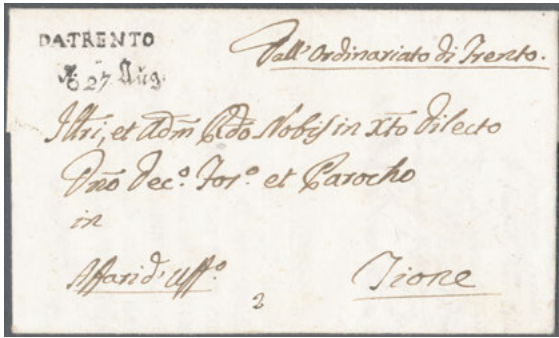 DA.TRENTO
27 Aug.
Dall'Ordinariato di Trento.
Illri, et Adm Rdo Nobis in Xto Dilecto
Dno Dec.o For.o et Parocho
in
Affari d'Uff.o
Tione
2